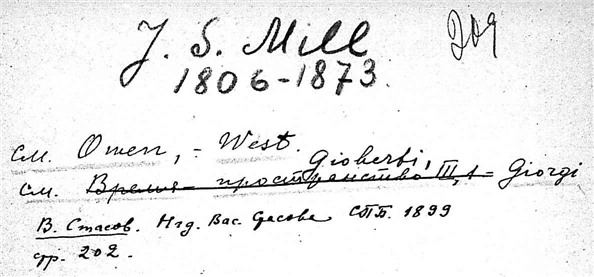 J. S. Mill
209
1806-1873.
см. Owen, = West.
Gioberti,
см. Время - пространство III, 1 = Giorgi
В. Стасов. СПБ. 1899
стр. 202.